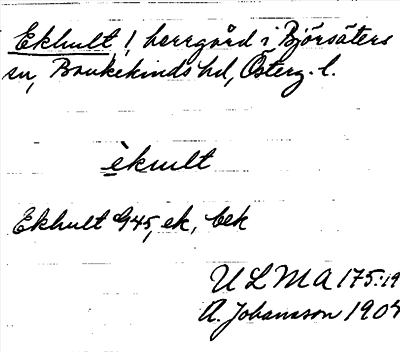 Ekhult, herrgård i Björsäters
sn, Bankekinds hd, Österg. l.
èkult
Ekhult G45, ek, bek
ULMA 175:19
A. Johansson 1907